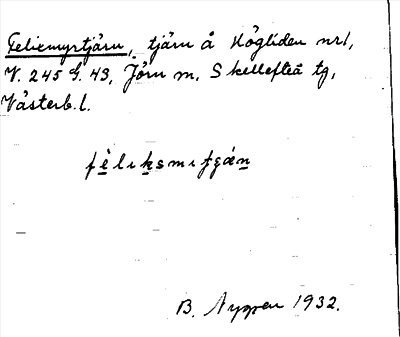 Felixmyrtjärn, tjärn å Högliden nr 1,
V. 245 G. 43, Jörn sn, Skellefteå tg,
Västerb. l.
B. Nygren 1932.